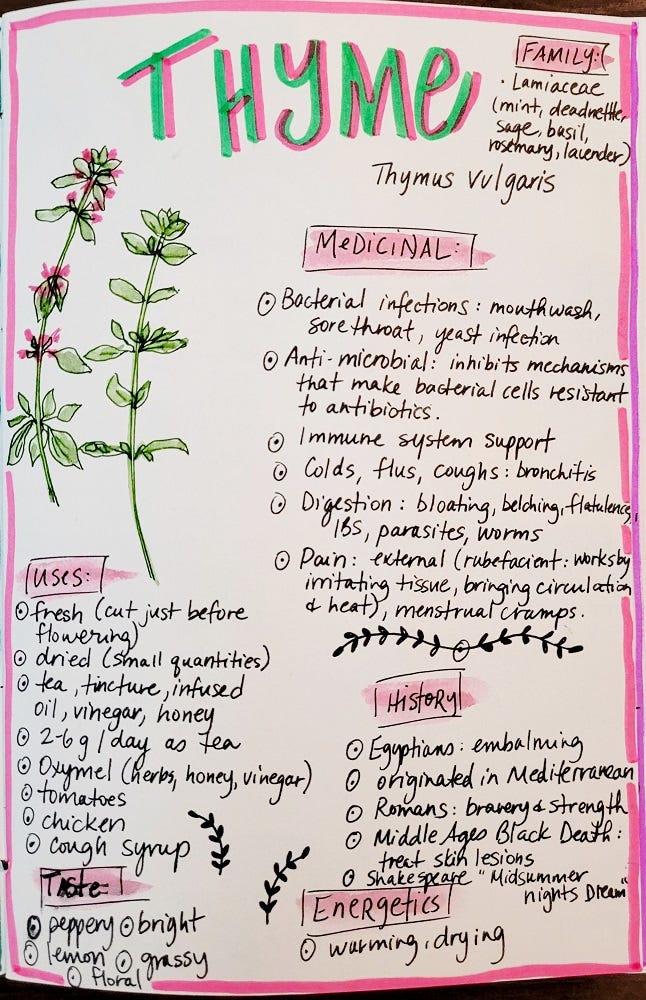 THYME
FAMILY:
· Lamiaceae
(mint, deadnettle,
sage, basil,
rosemary, lavender)
Thymus vulgaris
MEDICINAL:
Bacterial infections: mouthwash,
sore throat, yeast infection
Anti-microbial: inhibits mechanisms
that make bacterial cells resistant
to antibiotics.
Immune system support
Colds, flus, coughs: bronchitis
Digestion: bloating, belching, flatulence,
IBS, parasites, worms
Pain: external (rubefacient: works by
irritating tissue, bringing circulation
& heat), menstrual cramps.
USES:
fresh (cut just before
flowering)
dried (small quantities)
tea, tincture, infused
oil, vinegar, honey
2-6g/day as tea
Oxymel (herbs, honey, vinegar)
tomatoes
chicken
cough syrup
Taste:
peppery bright
lemon grassy
floral
HISTORY
Egyptians: embalming
originated in Mediterranean
Romans: bravery & strength
Middle Ages Black Death:
treat skin lesions
Shakespeare "Midsummer
nights Dream"
ENERGETICS
warming, drying